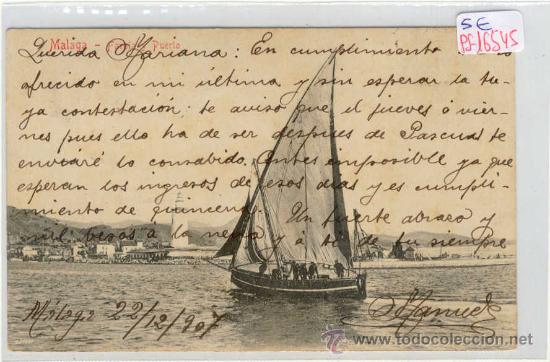 SE
PF16545
Malaga - Puerto
Querida Mariana: En cumplimiento
ofrecido en mi última y sin esperar la tu-
ya contestación te aviso que el jueves ó vier-
nes pues ello ha de ser despues de Pascuas te
enviaré lo consabido. Antes imposible ya que
esperan los ingresos de esos dias y es cumpli-
miento de quincena. Un fuerte abrazo y
mil besos á la nena y á ti de tu siempre
Málaga 22/12/907 Manuel
todocoleccion.net